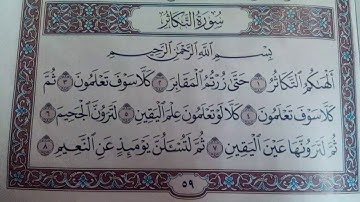 سُورَةُ التَّكَاثُرِ
بِسْمِ اللَّهِ الرَّحْمَٰنِ الرَّحِيمِ
أَلْهَىٰكُمُ التَّكَاثُرُ ١ حَتَّىٰ زُرْتُمُ الْمَقَابِرَ ٢ كَلَّا سَوْفَ تَعْلَمُونَ ٣ ثُمَّ
كَلَّا سَوْفَ تَعْلَمُونَ ٤ كَلَّا لَوْ تَعْلَمُونَ عِلْمَ الْيَقِينِ ٥ لَتَرَوُنَّ الْجَحِيمَ ٦
ثُمَّ لَتَرَوُنَّهَا عَيْنَ الْيَقِينِ ٧ ثُمَّ لَتُسْـَٔلُنَّ يَوْمَئِذٍ عَنِ النَّعِيمِ ٨
٥٩